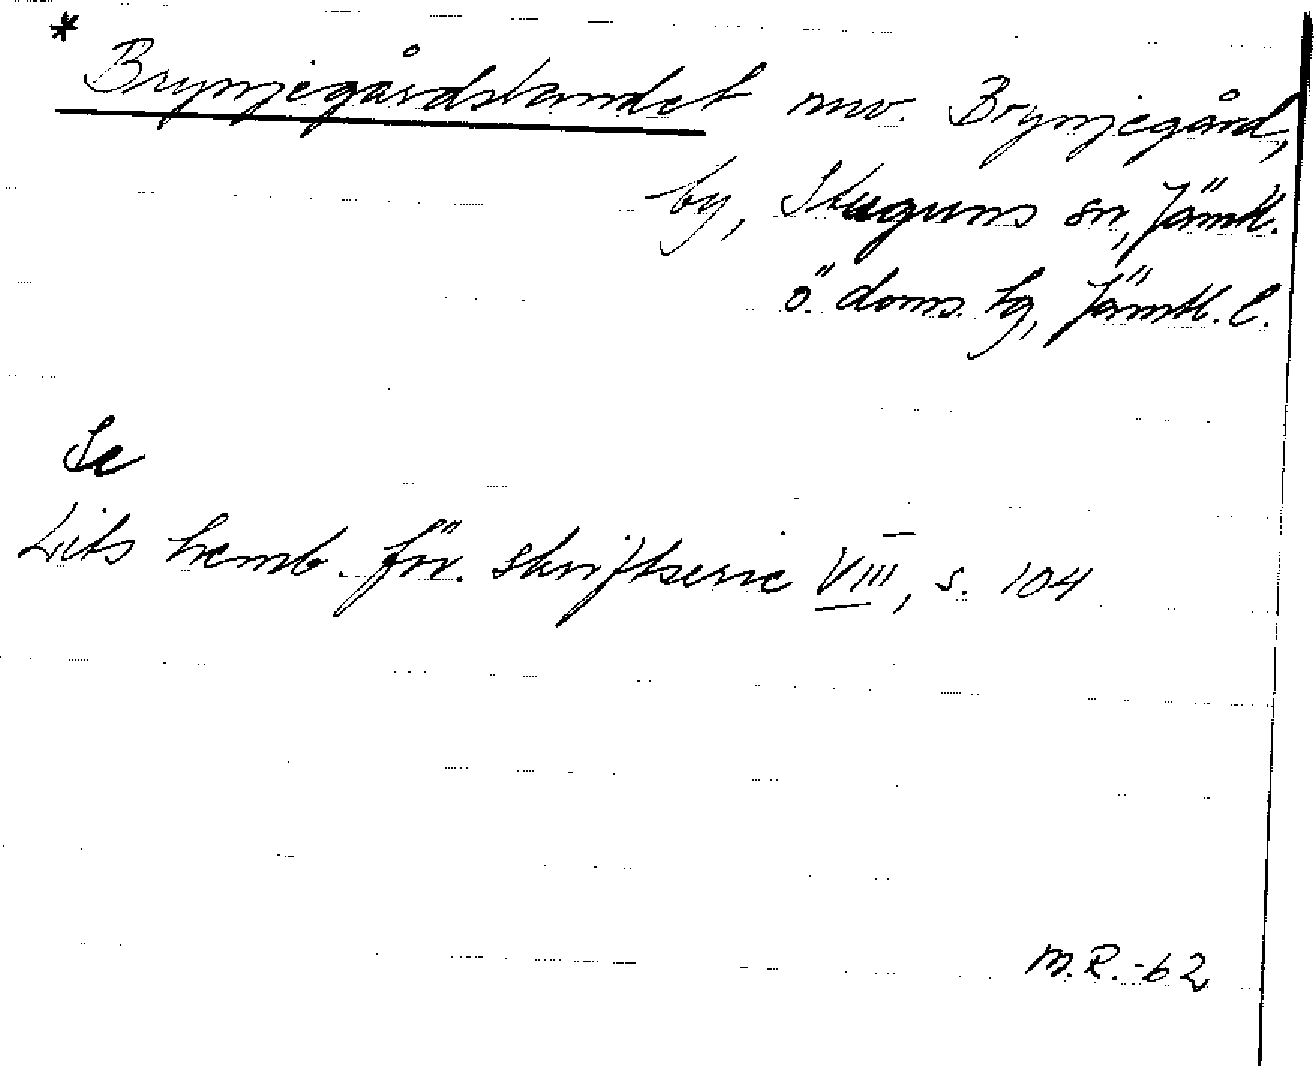 * Brynjegårdslandet nuv. Brynjegård,
by, Stuguns sn, Jämtl.
ö. doms. hg, Jämtl. l.
Se
Lits hemb. för. skriftserie VIII, s. 104
M.R. -62